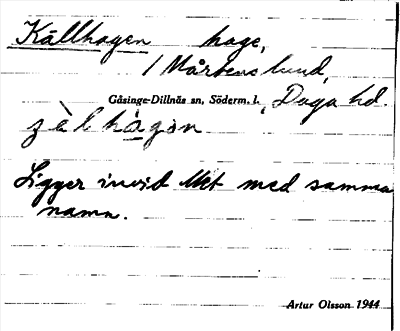 Källhagen hage,
/ Mårtenslund,
Gåsinge-Dillnäs sn, Söderm. l., Daga hd.
Ligger invid lht med samma
namn.
Artur Olsson 1944